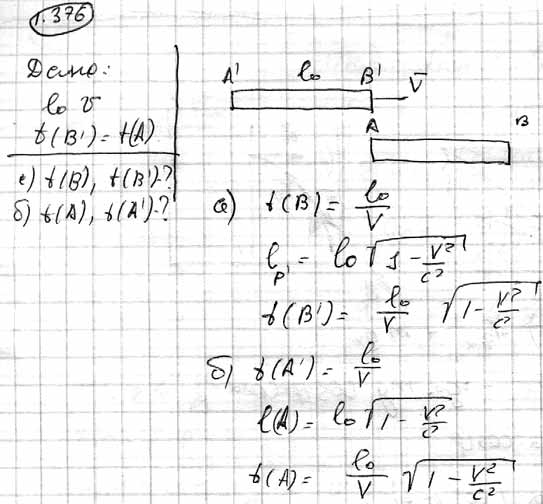 1.376
Дано:
l₀ v
t(B') = t(A)
а) t(B), t(B')-?
б) t(A), t(A')-?
A' l₀ B' V
A B
а) t(B) = l₀/V
l_P' = l₀ √(1 - V²/c²)
t(B') = l₀/V √(1 - V²/c²)
б) t(A') = l₀/V
l(A) = l₀ √(1 - V²/c²)
t(A) = l₀/V √(1 - V²/c²)